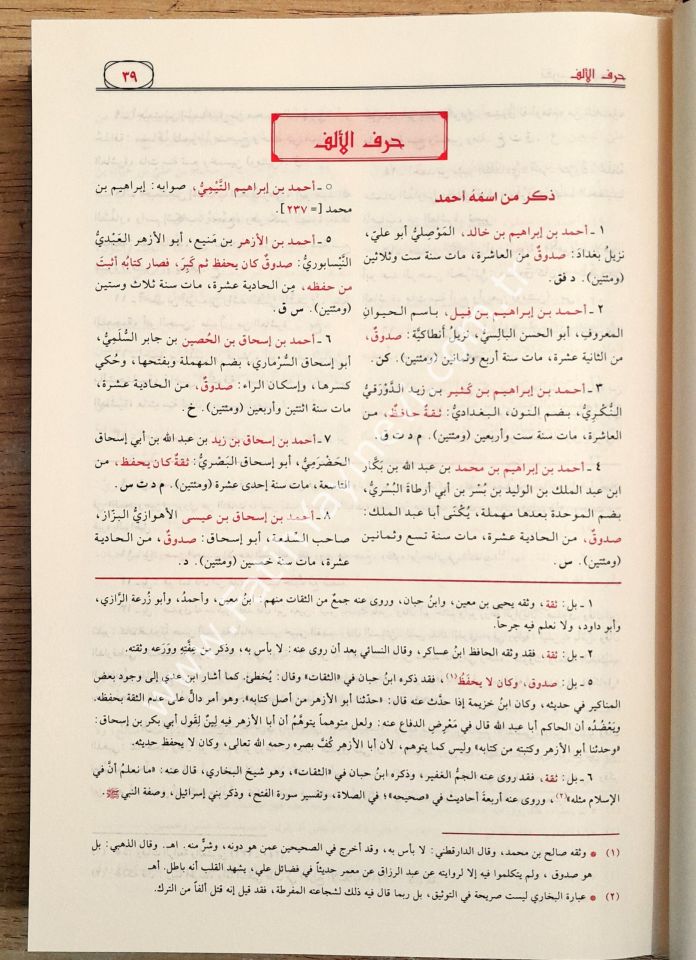 حرف الألف
٣٩
حرف الألف
ذكر من اسمه أحمد
١ ـ أحمد بن إبراهيم بن خالد، المَوْصِليُّ أبو عليّ،
نزيلُ بغدادَ: صدوقٌ من العاشرة، مات سنة ست وثلاثين
(ومئتين). د فق.
٢ ـ أحمد بن إبراهيم بن فيل، باسم الحيوان
المعروف، أبو الحسن البالِسيُّ، نزيلُ أنطاكيَّة: صدوقٌ،
من الثانية عشرة، مات سنة أربع وثمانين (ومئتين). كن.
٣ ـ أحمد بن إبراهيم بن كثير بن زيد الدَّوْرَقيُّ
النُّكْرِيُّ، بضم النون، البغداديُّ: ثقةٌ حافظٌ، من
العاشرة، مات سنة ست وأربعين (ومئتين). م د ت ق.
٤ ـ أحمد بن إبراهيم بن محمد بن عبد الله بن بكَّار
ابن عبد الملك بن الوليد بن بُسْر بن أبي أرطاةَ البُسْريُّ،
بضم الموحدة بعدها مهملة، يُكْنَى أبا عبد الملك:
صدوقٌ، من الحادية عشرة، مات سنة تسع وثمانين
(ومئتين). س.
○ ـ أحمد بن إبراهيم التَّيْمِيُّ، صوابه: إبراهيم بن
محمد [= ٢٣٧].
٥ ـ أحمد بن الأزهر بن مَنيع، أبو الأزهر العَبْديُّ
النَّيْسابوريُّ: صدوقٌ كان يحفظ ثم كَبِرَ، فصار كتابُه أثبتَ
من حفظه، مِن الحادية عشرة، مات سنة ثلاث وستين
(ومئتين). س ق.
٦ ـ أحمد بن إسحاق بن الحُصين بن جابر السُّلَميُّ،
أبو إسحاق السُّرْماري، بضم المهملة وبفتحها، وحُكي
كسرها، وإسكان الراء: صدوقٌ، من الحادية عشرة،
مات سنة اثنتين وأربعين (ومئتين). خ.
٧ ـ أحمد بن إسحاق بن زيد بن عبد الله بن أبي إسحاق
الحَضْرَميُّ، أبو إسحاق البَصْريُّ: ثقةٌ كان يحفظ، من
التاسعة، مات سنة إحدى عشرة (ومئتين). م د ت س.
٨ ـ أحمد بن إسحاق بن عيسى الأهوازيُّ البزَّاز،
صاحب السِّلْعة، أبو إسحاق: صدوقٌ، من الحادية
عشرة، مات سنة خمسين (ومئتين). د.
١ ـ بل: ثقة، وثقه يحيى بن معين، وابنُ حبان، وروى عنه جمعٌ من الثقات منهم: ابنُ معين، وأحمدُ، وأبو زُرعة الرازي،
وأبو داود، ولا نعلم فيه جرحاً.
٢ ـ بل: ثقة، فقد وثقه الحافظ ابنُ عساكر، وقال النسائي بعد أن روى عنه: لا بأس به، وذكر من عِفَّتِهِ ووَرَعه وثقته.
٥ ـ بل: صدوق، وكان لا يحفَظُ(١)، فقد ذكره ابنُ حبان في «الثقات» وقال: يُخطئ. كما أشار ابن عدي إلى وجود بعض
المناكير في حديثه، وكان ابنُ خزيمة إذا حدَّث عنه قال: «حدّثنا أبو الأزهر من أصل كتابه». وهو أمر دالٌّ على عدم الثقة بحفظه.
ويَعْضُدُه أن الحاكم أبا عبد الله قال في مَعْرِض الدفاع عنه: ولعل متوهماً يتوهَّمُ أن أبا الأزهر فيه لِينٌ لِقول أبي بكر بن إسحاق:
«وحدثنا أبو الأزهر وكتبته من كتابه» وليس كما يتوهم، لأن أبا الأزهر كُفَّ بصره رحمه الله تعالى، وكان لا يحفظ حديثه.
٦ ـ بل: ثقة، فقد روى عنه الجمُّ الغفير، وذكره ابنُ حبان في «الثقات»، وهو شيخ البخاري، قال عنه: «ما نعلمُ أنَّ في
الإسلام مثله»(٢)، وروى عنه أربعةَ أحاديث في «صحيحه»؛ في الصلاة، وتفسير سورة الفتح، وذكر بني إسرائيل، وصفة النبي ﷺ.
(١) * وثقه صالح بن محمد، وقال الدارقطني: لا بأس به، وقد أخرج في الصحيحين عمن هو دونه، وشرٌّ منه. اهـ. وقال الذهبي: بل
هو صدوق، ولم يتكلموا فيه إلا لروايته عن عبد الرزاق عن معمر حديثاً في فضائل علي، يشهد القلب أنه باطل. اهـ
(٢) * عبارة البخاري ليست صريحة في التوثيق، بل ربما قال فيه ذلك لشجاعته المفرطة، فقد قيل إنه قتل ألفاً من الترك.